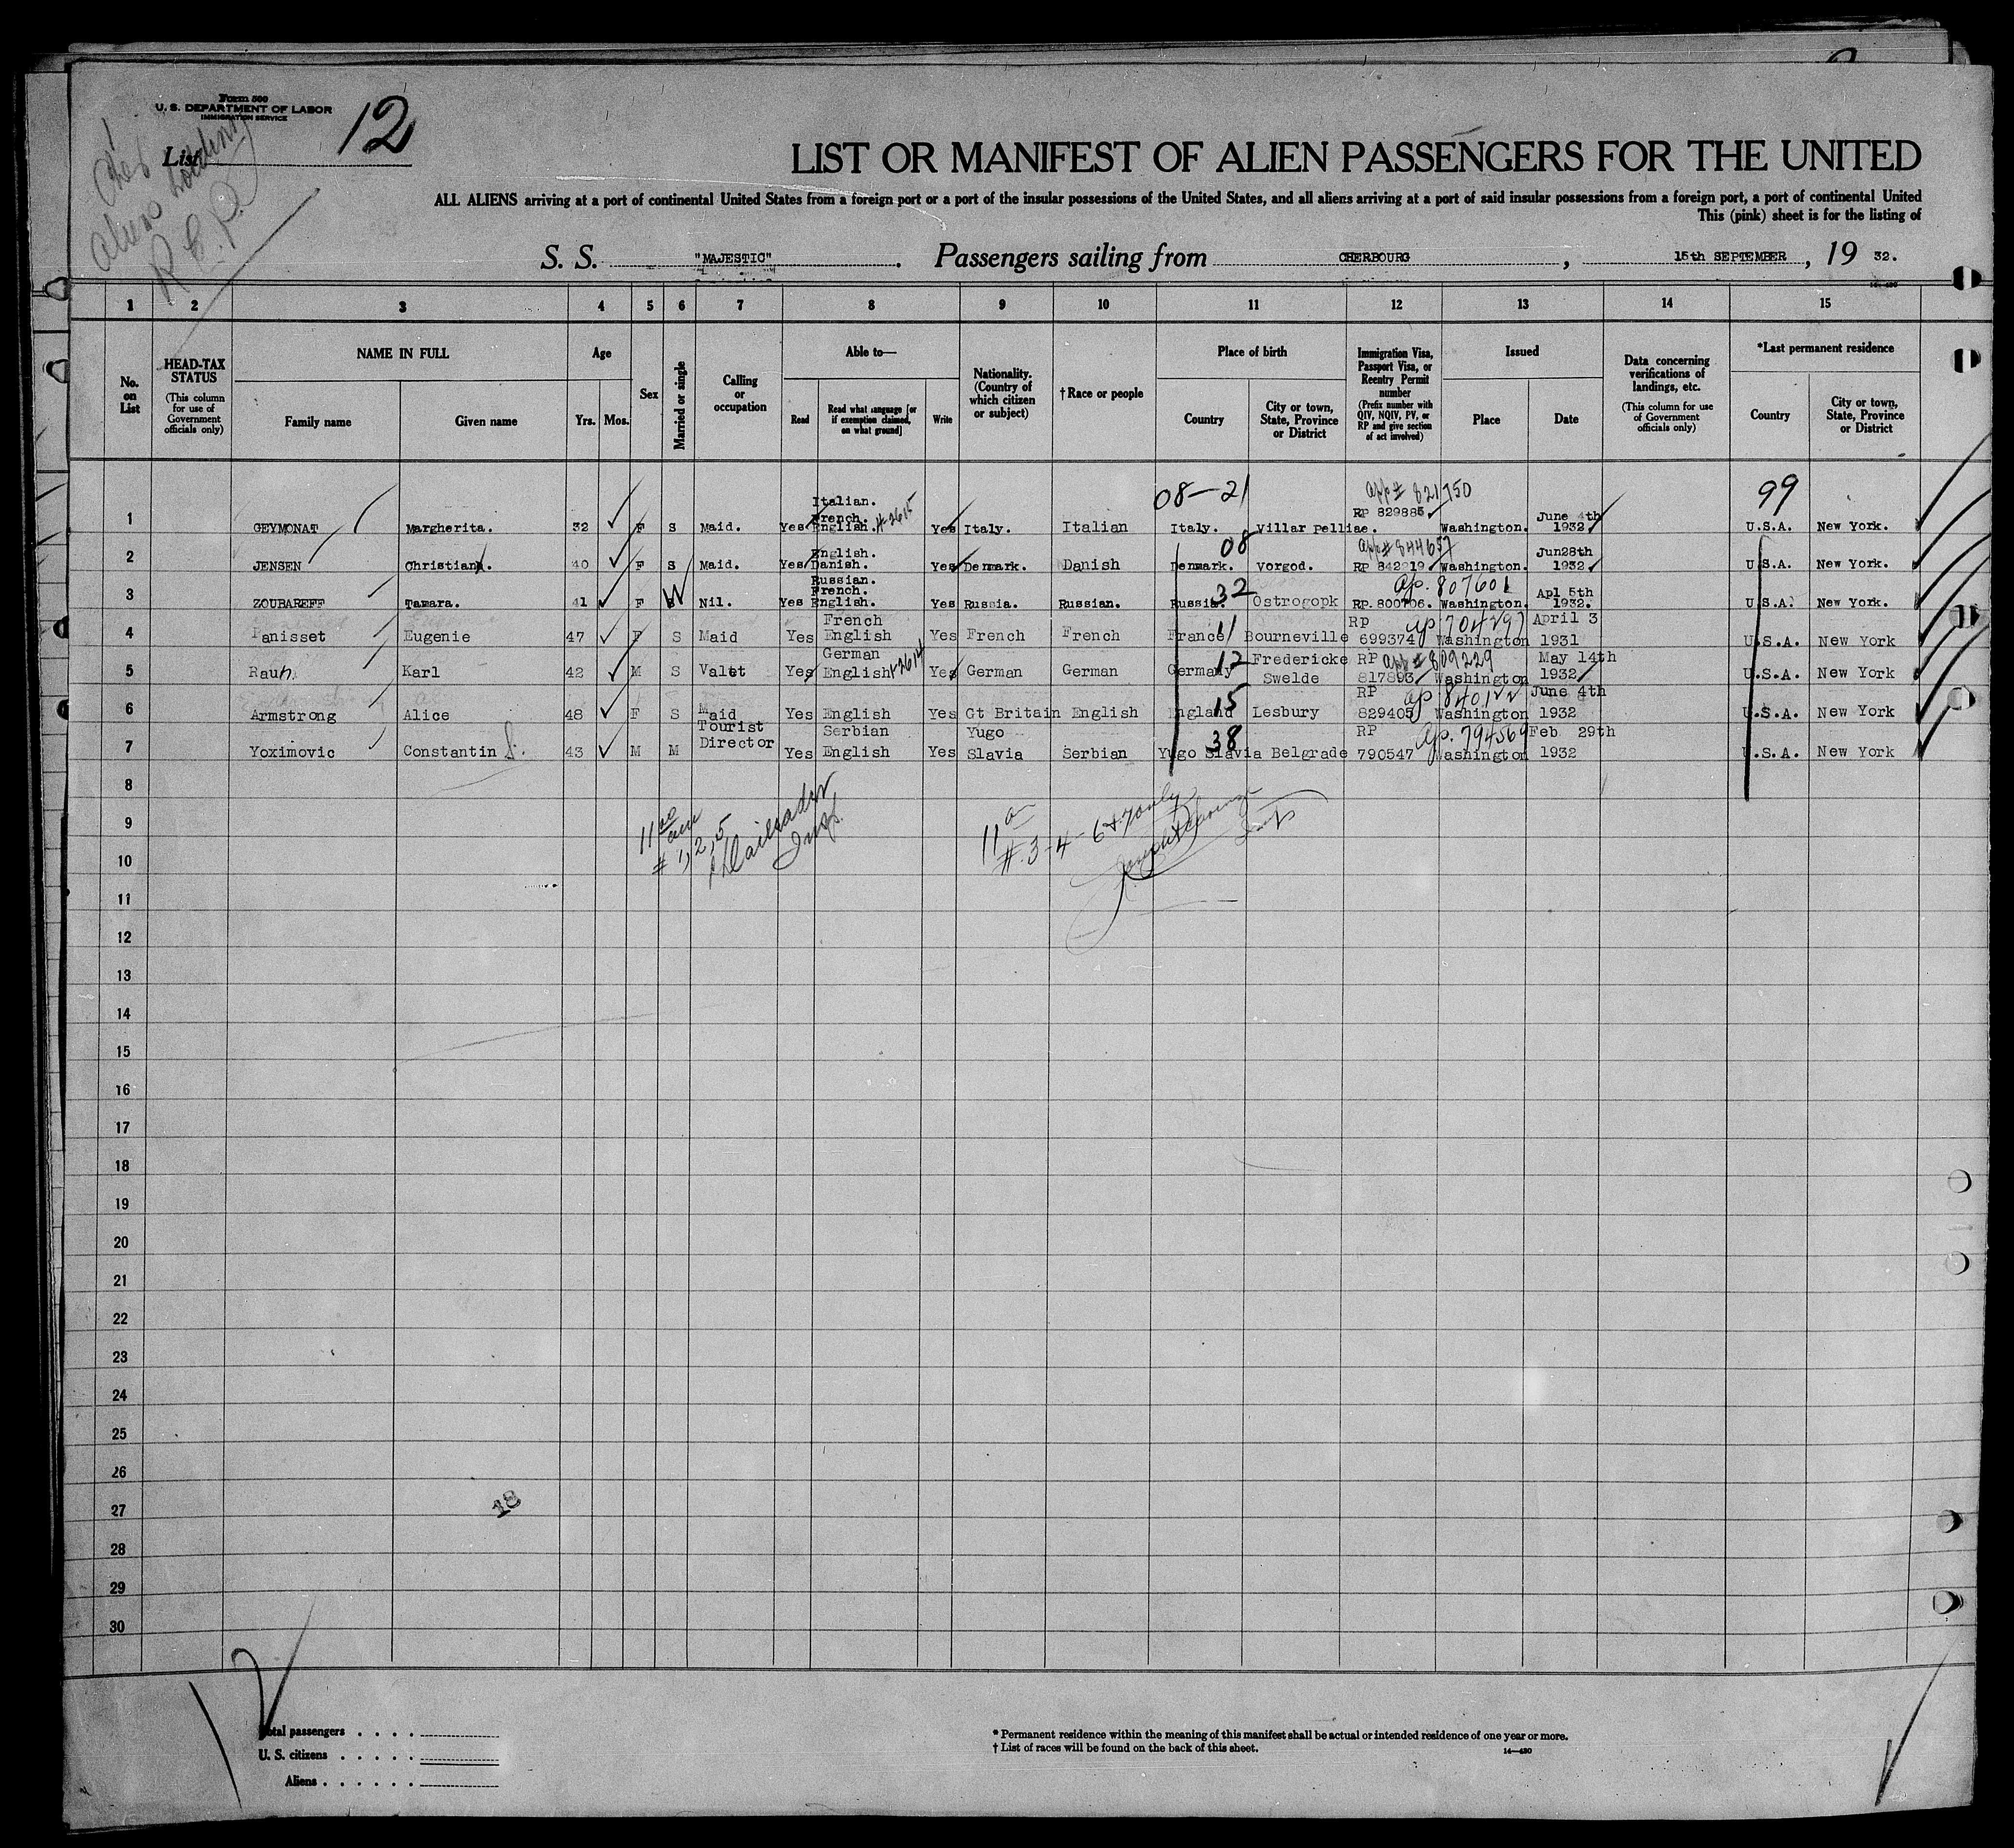 Form 500
U. S. DEPARTMENT OF LABOR
IMMIGRATION SERVICE
List 12
aliens holding
R. E. P.
LIST OR MANIFEST OF ALIEN PASSENGERS FOR THE UNITED
ALL ALIENS arriving at a port of continental United States from a foreign port or a port of the insular possessions of the United States, and all aliens arriving at a port of said insular possessions from a foreign port, a port of continental United
This (pink) sheet is for the listing of
S. S. "MAJESTIC". Passengers sailing from CHERBOURG, 15th SEPTEMBER, 19 32.
1 2 3 4 5 6 7 8 9 10 11 12 13 14 15
No. on List
HEAD-TAX STATUS (This column for use of Government officials only)
NAME IN FULL
Family name Given name
Age
Yrs. Mos.
Sex
Married or single
Calling or occupation
Able to—
Read Read what language [or if exemption claimed, on what ground] Write
Nationality. (Country of which citizen or subject)
† Race or people
Place of birth
Country City or town, State, Province or District
Immigration Visa, Passport Visa, or Reentry Permit number (Prefix number with QIV, NQIV, PV, or RP and give section of act involved)
Issued
Place Date
Data concerning verifications of landings, etc. (This column for use of Government officials only)
*Last permanent residence
Country City or town, State, Province or District
1 GEYMONAT Margherita. 32 F S Maid. Yes Italian. French. English. #2615 Yes Italy. Italian 08-21 Italy. Villar Pelliae. app# 821750 RP 829885. Washington. June 4th 1932 99 U.S.A. New York.
2 JENSEN Christiana. 40 F S Maid. Yes English. Danish. Yes Denmark. Danish 08 Denmark. Vorgod. app# 844657 RP 842219 Washington. Jun28th 1932. U.S.A. New York.
3 ZOUBAREFF Tamara. 41 F W Nil. Yes Russian. French. English. Yes Russia. Russian. 32 Russia. Ostrogopk ap. 807601 RP.800706. Washington. Apl 5th 1932. U.S.A. New York.
4 Panisset Eugenie 47 F S Maid Yes French English Yes French French 11 France Bourneville RP 699374 ap 704297 Washington April 3 1931 U.S.A. New York
5 Rauh Karl 42 M S Valet Yes German English #2614 Yes German German 12 Germany Fredericke Swelde RP 817893 app# 809229 Washington May 14th 1932 U.S.A. New York
6 Armstrong Alice 48 F S Maid Yes English Yes Gt Britain English 15 England Lesbury RP 829405 ap 840122 Washington June 4th 1932 U.S.A. New York
7 Yoximovic Constantin S. 43 M M Tourist Director Yes Serbian English Yes Yugo Slavia Serbian 38 Yugo Slavia Belgrade RP 790547 ap. 794569 Washington Feb 29th 1932 U.S.A. New York
8
9
10
11 am
# 1, 2, 5
Insp.
11 a
#.3-4-6+7 only
11
12
13
14
15
16
17
18
19
20
21
22
23
24
25
26
27
18
28
29
30
Total passengers . . . .
U. S. citizens . . . . .
Aliens . . . . . .
* Permanent residence within the meaning of this manifest shall be actual or intended residence of one year or more.
† List of races will be found on the back of this sheet.
14—430